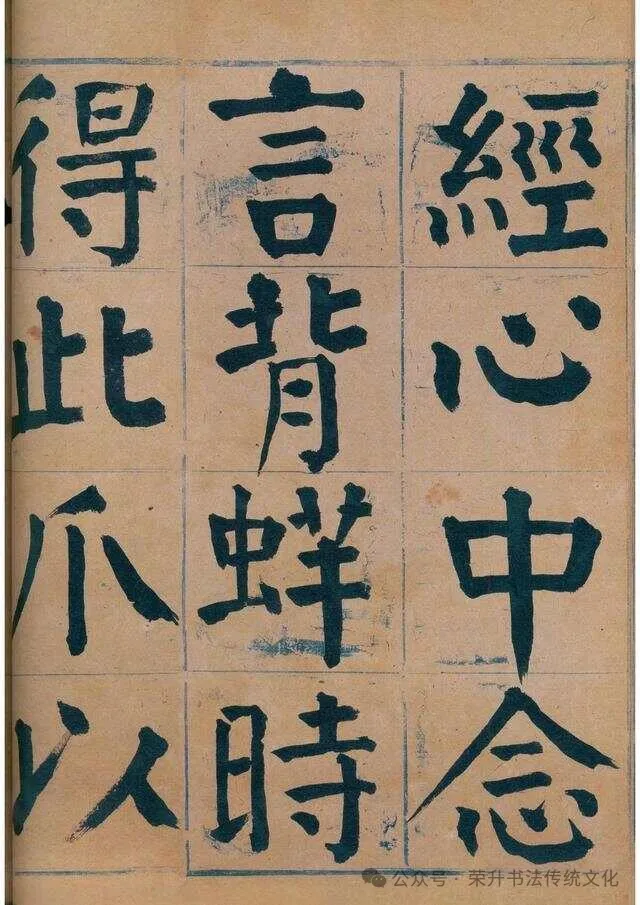 經心中念
言背蛘時
得此爪以
公众号 · 荣升书法传统文化